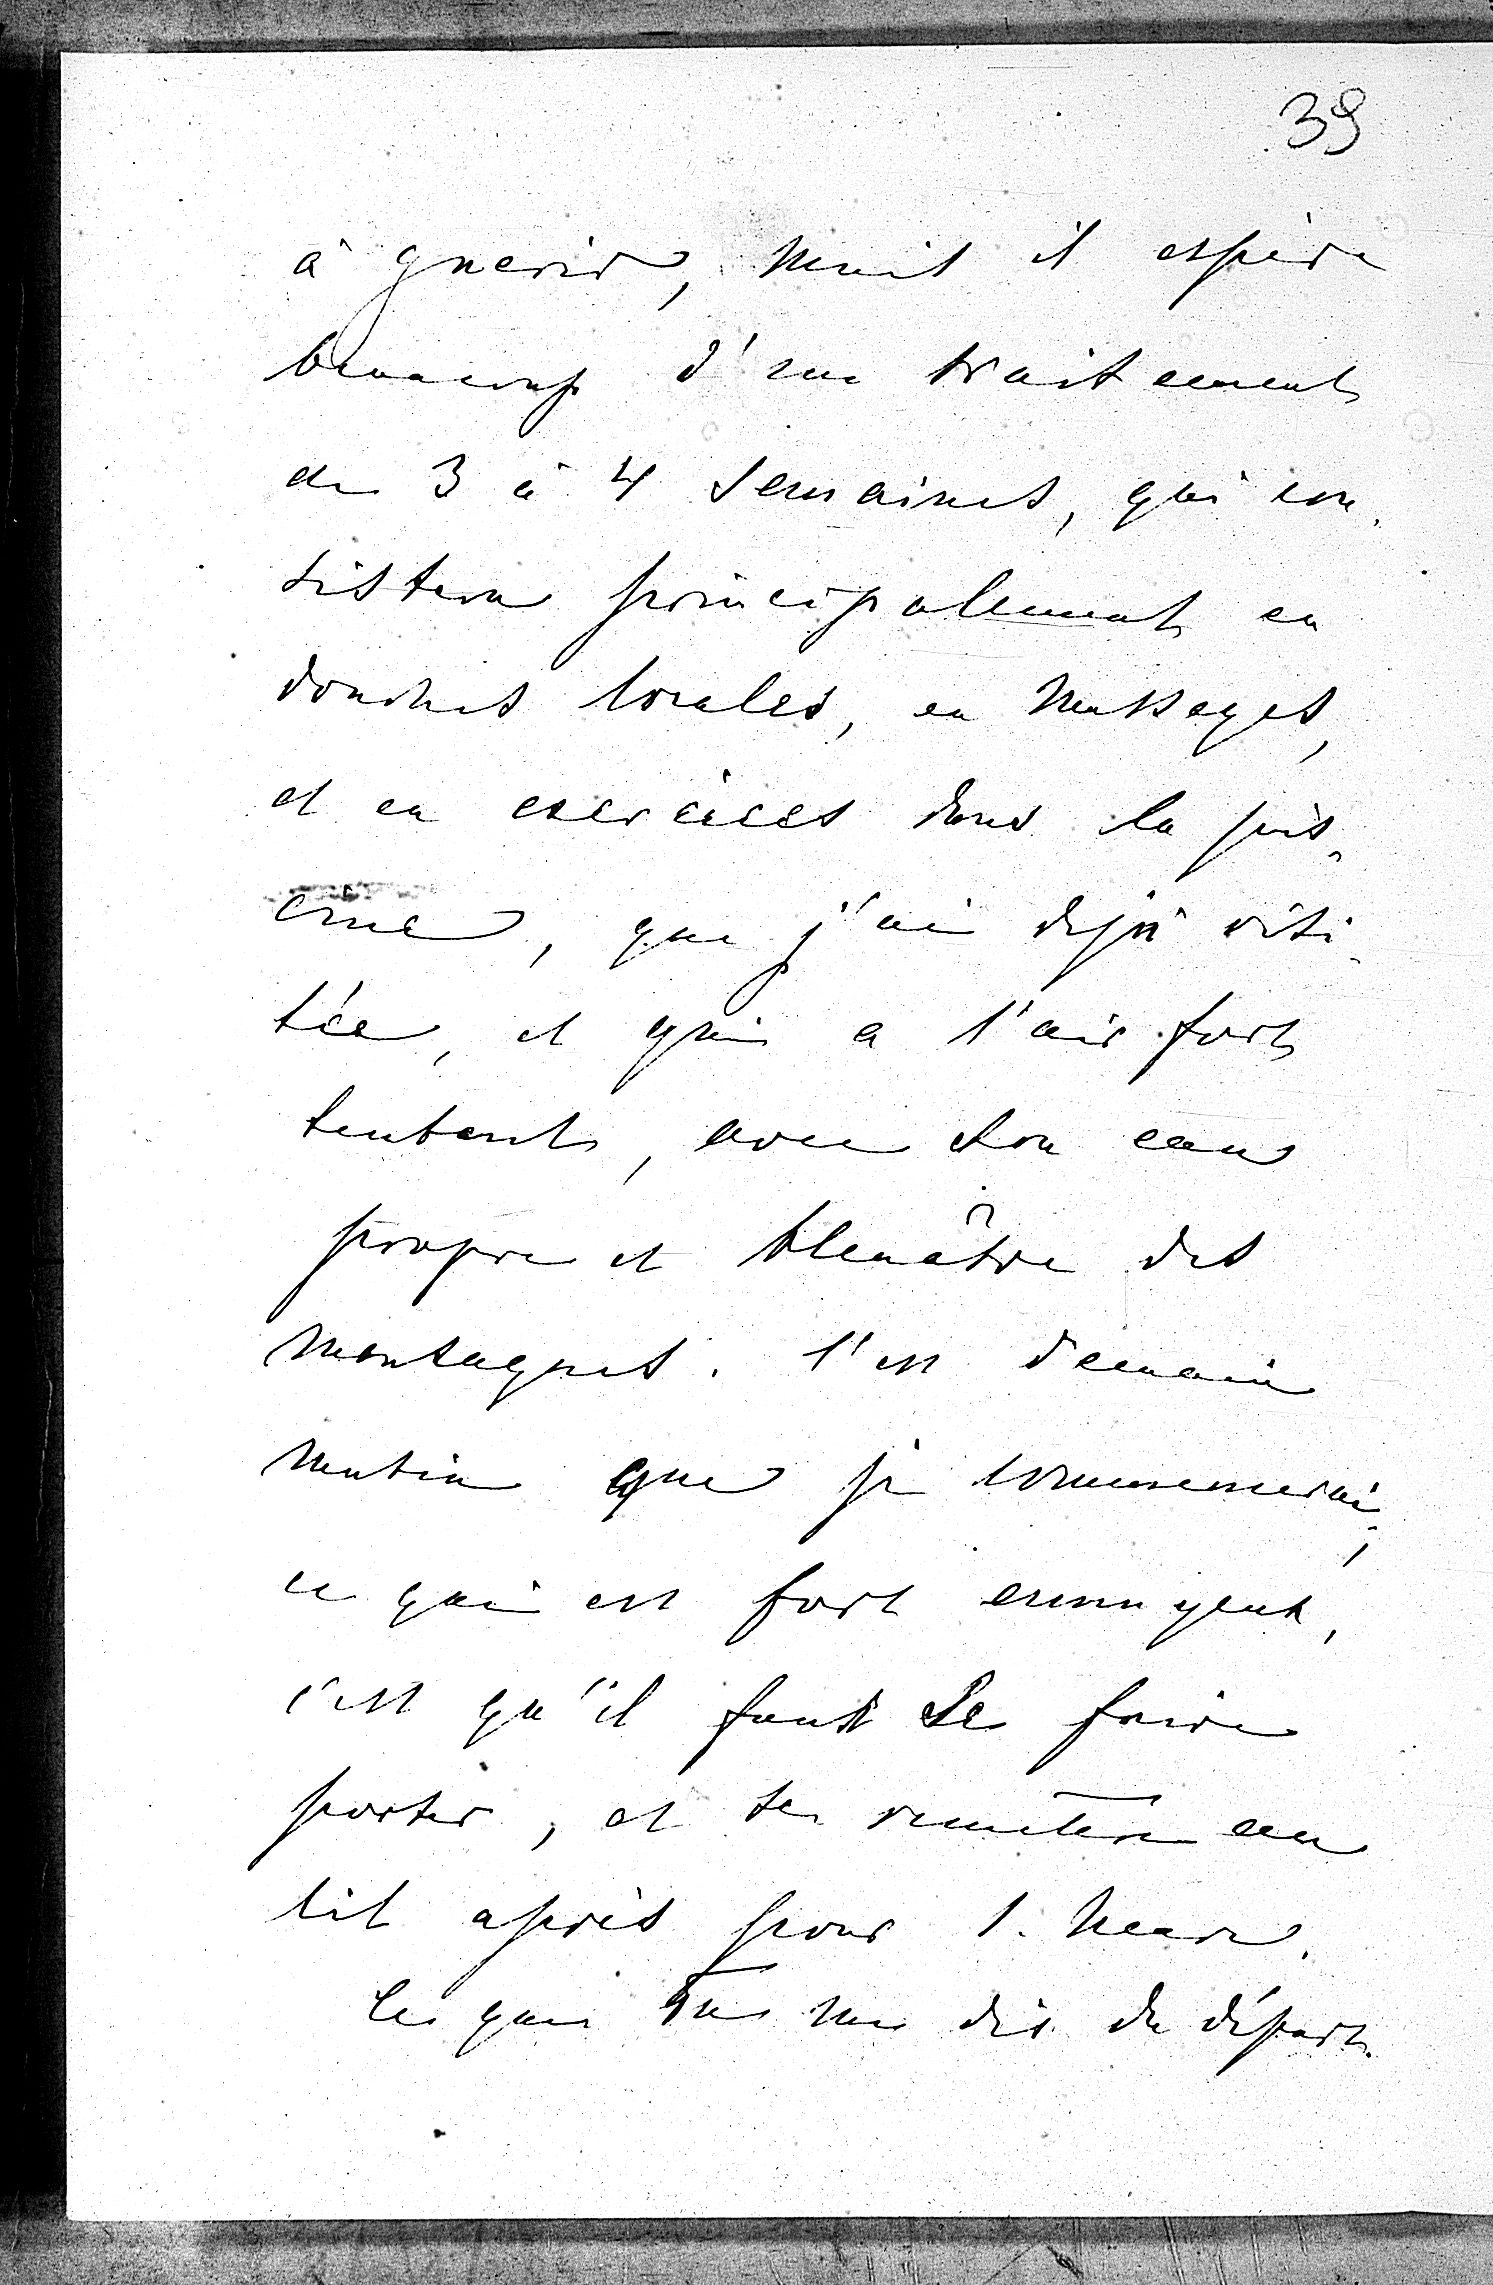 39
à guerir, mais il espère
beaucoup d'un traitement
de 3 à 4 semaines, qui con-
sistera principalement en
douches locales, en massages,
et en exercices dans la pis-
cine, que j'ai dejà visi-
tée, et qui a l'air fort
tentant, avec son eau
propre et bleuâtre des
montagnes. C'est demain
matin que je commencerai;
ce qui est fort ennuyeux,
c'est qu'il faut se faire
porter, et se remettre au
lit après pour 1. heure.
Ce que tu me dis du départ